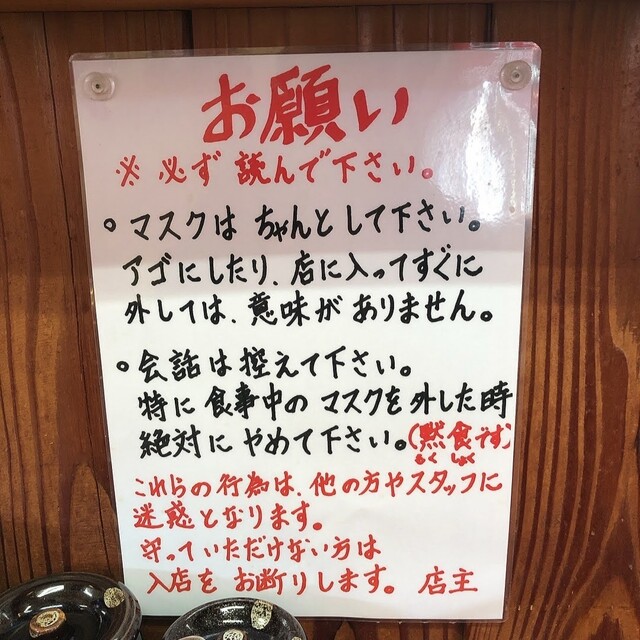 お願い
※必ず読んで下さい。
。マスクはちゃんとして下さい。
アゴにしたり、店に入ってすぐに
外しては、意味がありません。
。会話は控えて下さい。
特に食事中のマスクを外した時
絶対にやめて下さい。(黙食です)
もくしょく
これらの行為は、他の方やスタッフに
迷惑となります。
守っていただけない方は
入店をお断りします。 店主